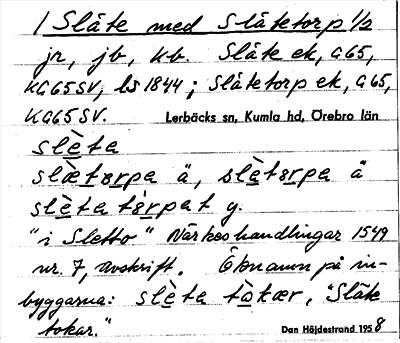 1 Slåte med Slåtetorp 1/2
jr, jb, kb. Slåte ek, G65,
KG65SV, ls 1844; Slåtetorp ek, G65,
KG65SV. Lerbäcks sn, Kumla hd, Örebro län
slèta
slètɵrpa ä, slètɵrpa ä
slèta tɵ̀rpat y.
"i Sletto" Närkeshandlingar 1549
nr. 7, avskrift. Öknamn på in-
byggarna: slèta tòkær, "Slåte
tokar."
Dan Höjdestrand 1958